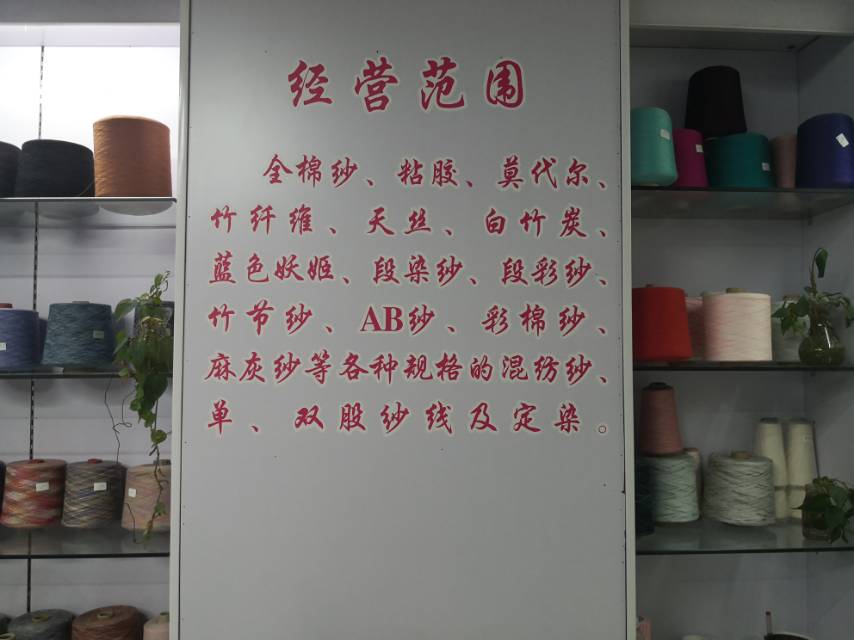 经营范围
全棉纱、粘胶、莫代尔、
竹纤维、天丝、白竹炭、
蓝色妖姬、段染纱、段彩纱、
竹节纱、AB纱、彩棉纱、
麻灰纱等各种规格的混纺纱、
单、双股纱线及定染。